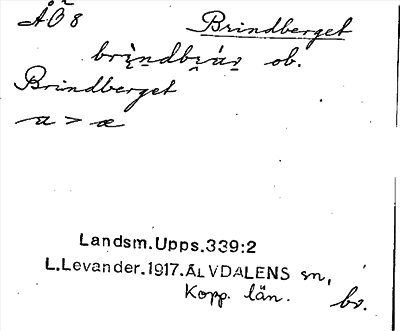 ÅÖ 8 Brindberget
ob.
Brindberget
a > æ
Landsm.Upps.339:2
L.Levander.1917.ÄLVDALENS sn,
Kopp. län. bv.